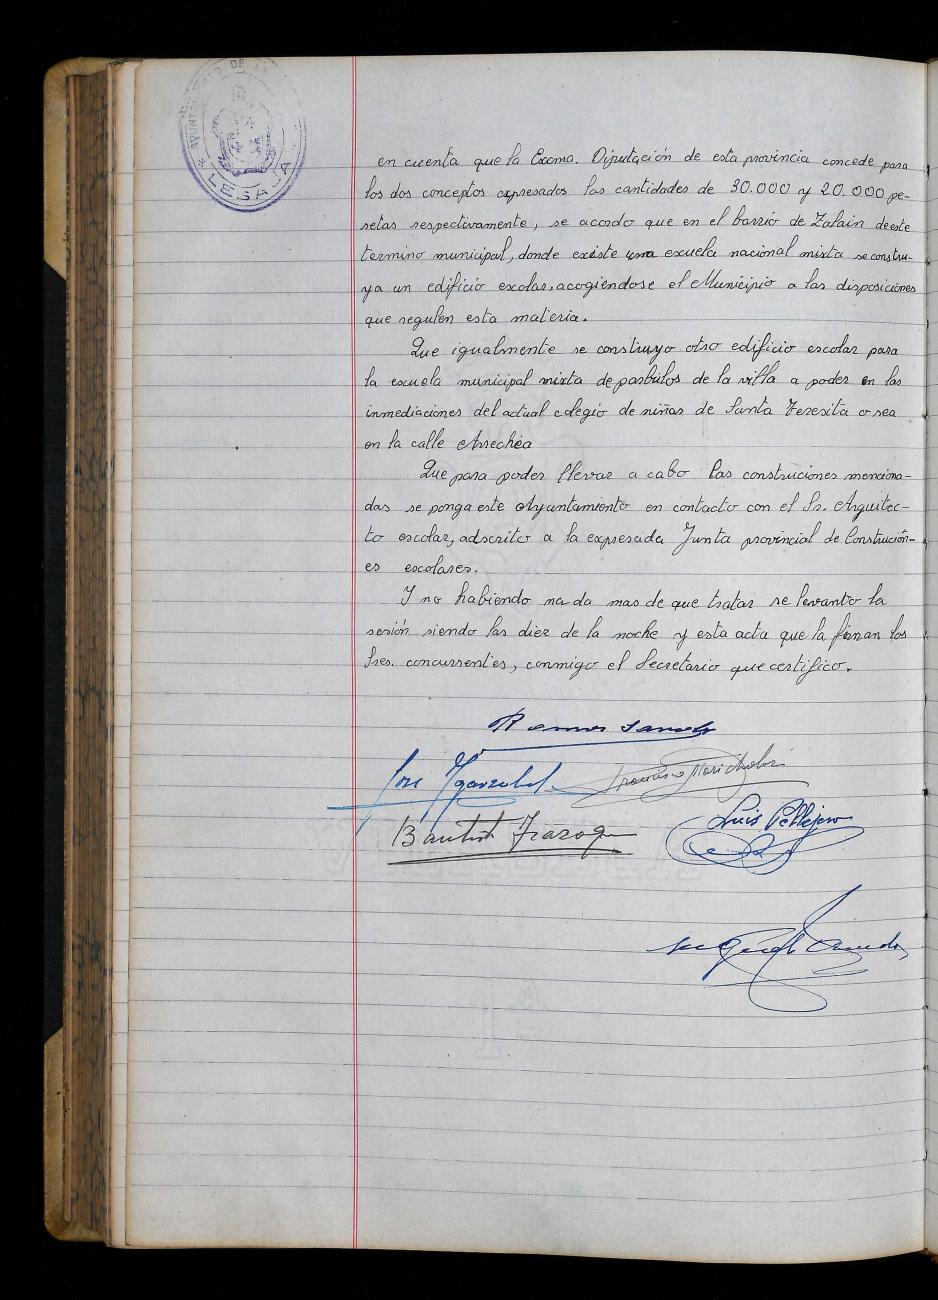 AYUNTAMIENTO DE
* LESACA *
en cuenta que la Excma. Diputación de esta provincia concede para
los dos conceptos expresados las cantidades de 30.000 y 20.000 pe-
setas respectivamente, se acordo que en el barrió de Zalain de este
termino municipal, donde existe una escuela nacional mixta se constru-
ya un edificio escolar, acogiéndose el Municipio a las disposiciones
que regulen esta materia.
Que igualmente se construyo otro edificio escolar para
la escuela municipal mixta de parbulos de la villa a poder en las
inmediaciones del actual colegio de niñas de Santa Teresita o sea
en la calle Arrechea
Que para poder llevar a cabo las construciones menciona-
das se ponga este Ayuntamiento en contacto con el Sr. Arquitec-
to escolar, adscrito a la expresada Junta provincial de Construción-
es escolares.
Y no habiendo nada mas de que tratar se levanto la
sesión siendo las diez de la noche y esta acta que la firman los
Sres. concurrentes, conmigo el Secretario que certifico.
Ramon
José
Francisco
Bautista
Luis Pellejero
Miguel